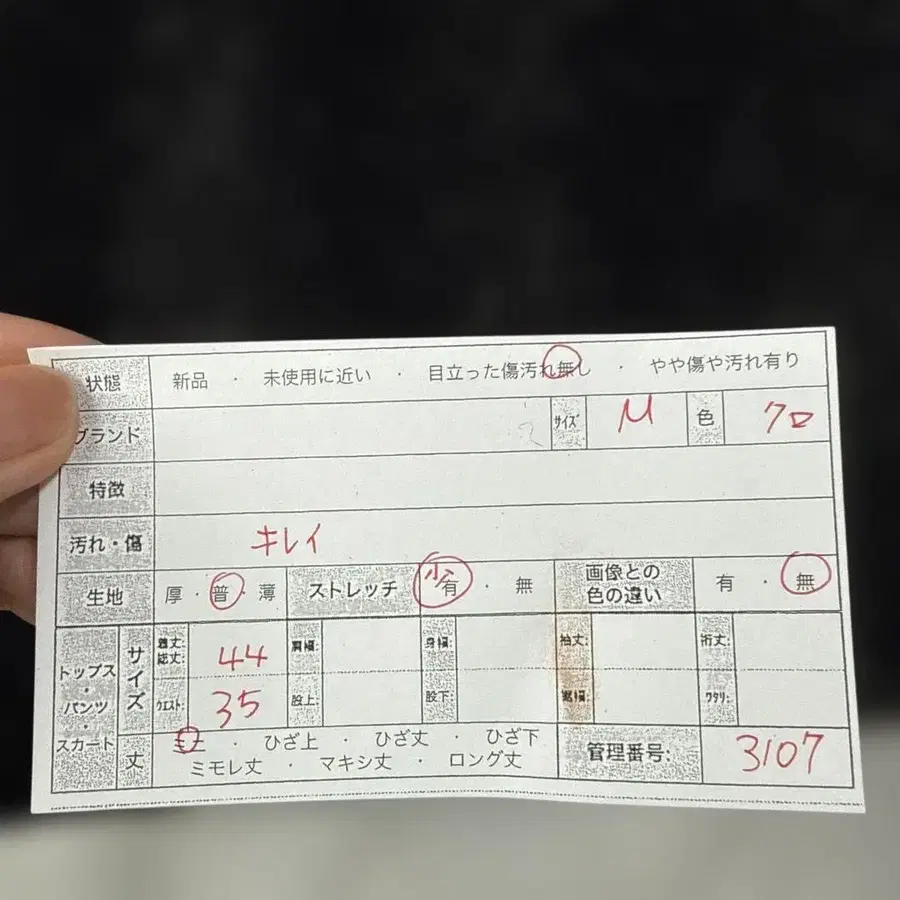 状態 新品 ・ 未使用に近い ・ 目立った傷汚れ無し ・ やや傷や汚れ有り
ブランド サイズ M 色 クロ
特徴
汚れ・傷 キレイ
生地 厚・普・薄 ストレッチ 少 有・無 画像との色の違い 有・無
トップス・パンツ・スカート サイズ 着丈: 総丈: 44 肩幅: 身幅: 袖丈: 裄丈:
ウエスト: 35 股上: 股下: 裾幅: ワタリ:
丈 ミニ ・ ひざ上 ・ ひざ丈 ・ ひざ下
ミモレ丈 ・ マキシ丈 ・ ロング丈 管理番号: 3107